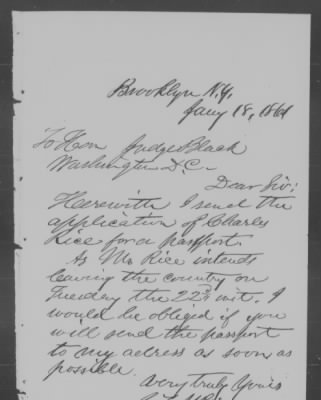 Brooklyn N.Y.
Jany 18, 1861
To Hon Judge Black
Washington D.C.
Dear Sir:
Herewith I send the
application of Charles
Rice for a passport.
As Mr Rice intends
leaving the country on
Tuesday the 22d inst. I
would be obliged if you
will send the passport
to my adress as soon as
possible.
Very truly Yours